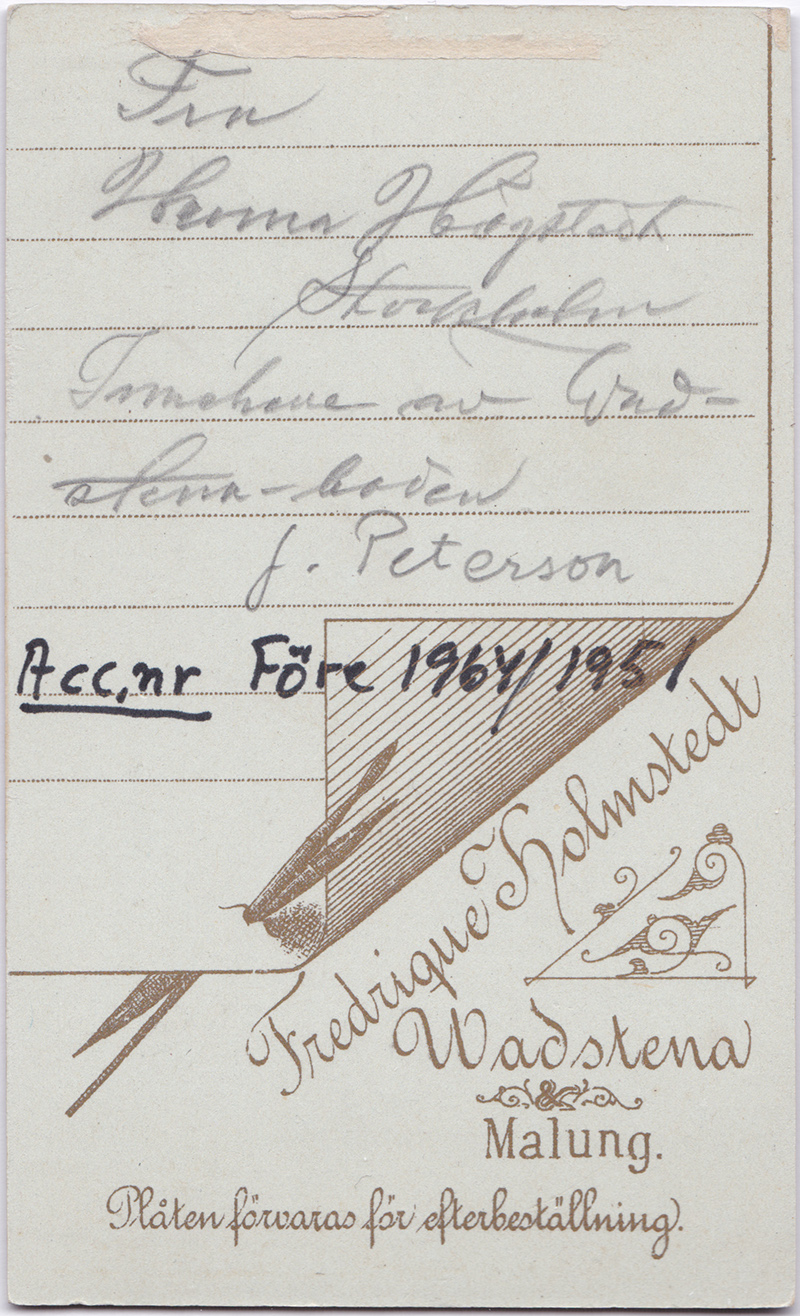 Fru
Thoma Högstadt
Stockholm
Innehave av Wad-
stena-boden
J. Peterson
Acc.nr Före 1964/1951
Fredrique Holmstedt
Wadstena
&
Malung.
Plåten förvaras för efterbeställning.